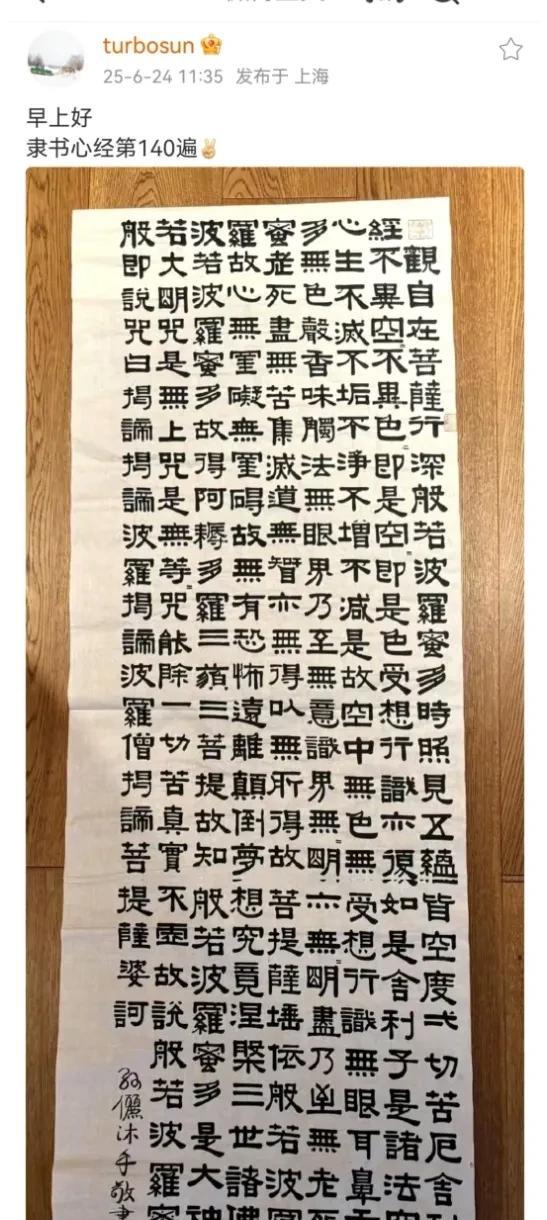 turbosun
25-6-24 11:35 发布于 上海
早上好
隶书心经第140遍✌
般若波羅蜜多心經
觀自在菩薩行深般若波羅蜜多時照見五蘊皆空度弌切苦厄舍
不異空不異色即是空即是色受想行識亦復如是舍利子是諸法空
生不滅不垢不淨不增不減是故空中無色無受想行識無眼耳鼻
無色聲香味觸法無眼界乃至無意識界無明亦無明盡乃至無老死
老死盡無苦集滅道無智亦無得以無所得故菩提薩埵依般若波羅
故心無罣礙無罣碍故無有恐怖遠離顛倒夢想究竟涅槃三世諸佛
若波羅蜜多故得阿耨多羅三藐三菩提故知般若波羅蜜多是大神
大明咒是無上咒是無等咒能除一切苦真實不虛故說般若波羅蜜
即說咒曰揭諦揭諦波羅揭諦波羅僧揭諦菩提薩婆訶
孫儷沐手敬書